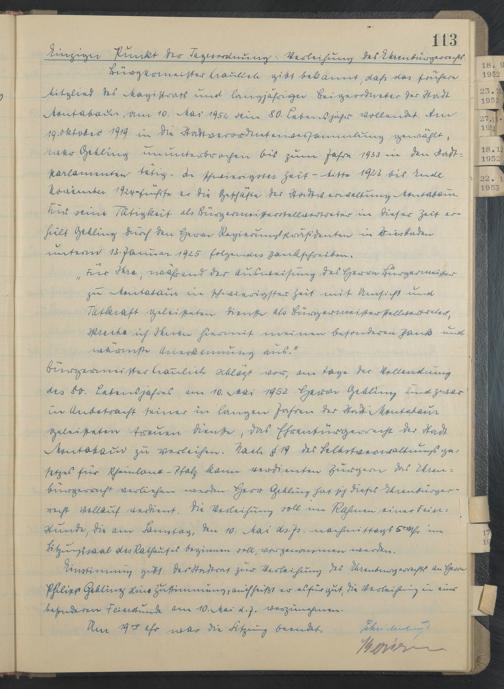 113
Einziger Punkt der Tagesordnung: Verleihung des Ehrenbürgerrechts
Bürgermeister Kraulich gibt bekannt, dass das frühere
Mitglied des Magistrats und langjähriger Beigeordneter der Stadt
Montabaur, am 10. Mai 1952 sein 80. Lebensjahr vollendet. Am
19. Oktober 1919 in die Stadtverordnetenversammlung gewählt,
war Gehling ununterbrochen bis zum Jahre 1933 in den Stadt-
parlamenten tätig. In schwierigster Zeit - 1923 bis Ende
1924 führte er die Geschäfte der Stadtverwaltung Montabaur
Für seine Tätigkeit als Bürgermeisterstellvertreter in dieser Zeit er-
hielt Gehling durch den Herrn Regierungspräsidenten in Wiesbaden
unterm 13. Januar 1925 folgendes Dankschreiben.
„Für Ihre, während der Ausweisung des Herrn Bürgermeister
zu Montabaur in schwierigster Zeit mit Umsicht und
Tatkraft geleisteten Dienste als Bürgermeisterstellvertreter,
spreche ich Ihnen hiermit meinen besonderen Dank und
wärmste Anerkennung aus."
Bürgermeister Kraulich schlägt vor, am Tage der Vollendung
des 80. Lebensjahres am 10. Mai 1952 Herrn Gehling und zwar
in Anbetracht seiner in langen Jahren der Stadt Montabaur
geleisteten treuen Dienste, das Ehrenbürgerrecht der Stadt
Montabaur zu verleihen. Nach § 19 des Selbstverwaltungsge-
setzes für Rheinland-Pfalz kann verdienten Bürgern das Ehren-
bürgerrecht verliehen werden Herr Gehling hat sich dieses Ehrenbürger-
recht vollauf verdient. Die Verleihung soll im Rahmen einer Feier-
stunde, die am Samstag, den 10. Mai ds. Js. nachmittags 5 Uhr im
Sitzungssaal des Rathauses beginnen soll, vorgenommen werden.
Einstimmig gibt der Stadtrat zur Verleihung des Ehrenbürgerrechts an Herrn
Philipp Gehling seine Zustimmung, auch heißt er es für gut, die Verleihung in einer
besonderen Feierstunde am 10. Mai d. J. vorzunehmen.
Um 19 Uhr war die Sitzung beendet.
18.
1952
23.
1952
27.
18.
1952
22. 1.
1953